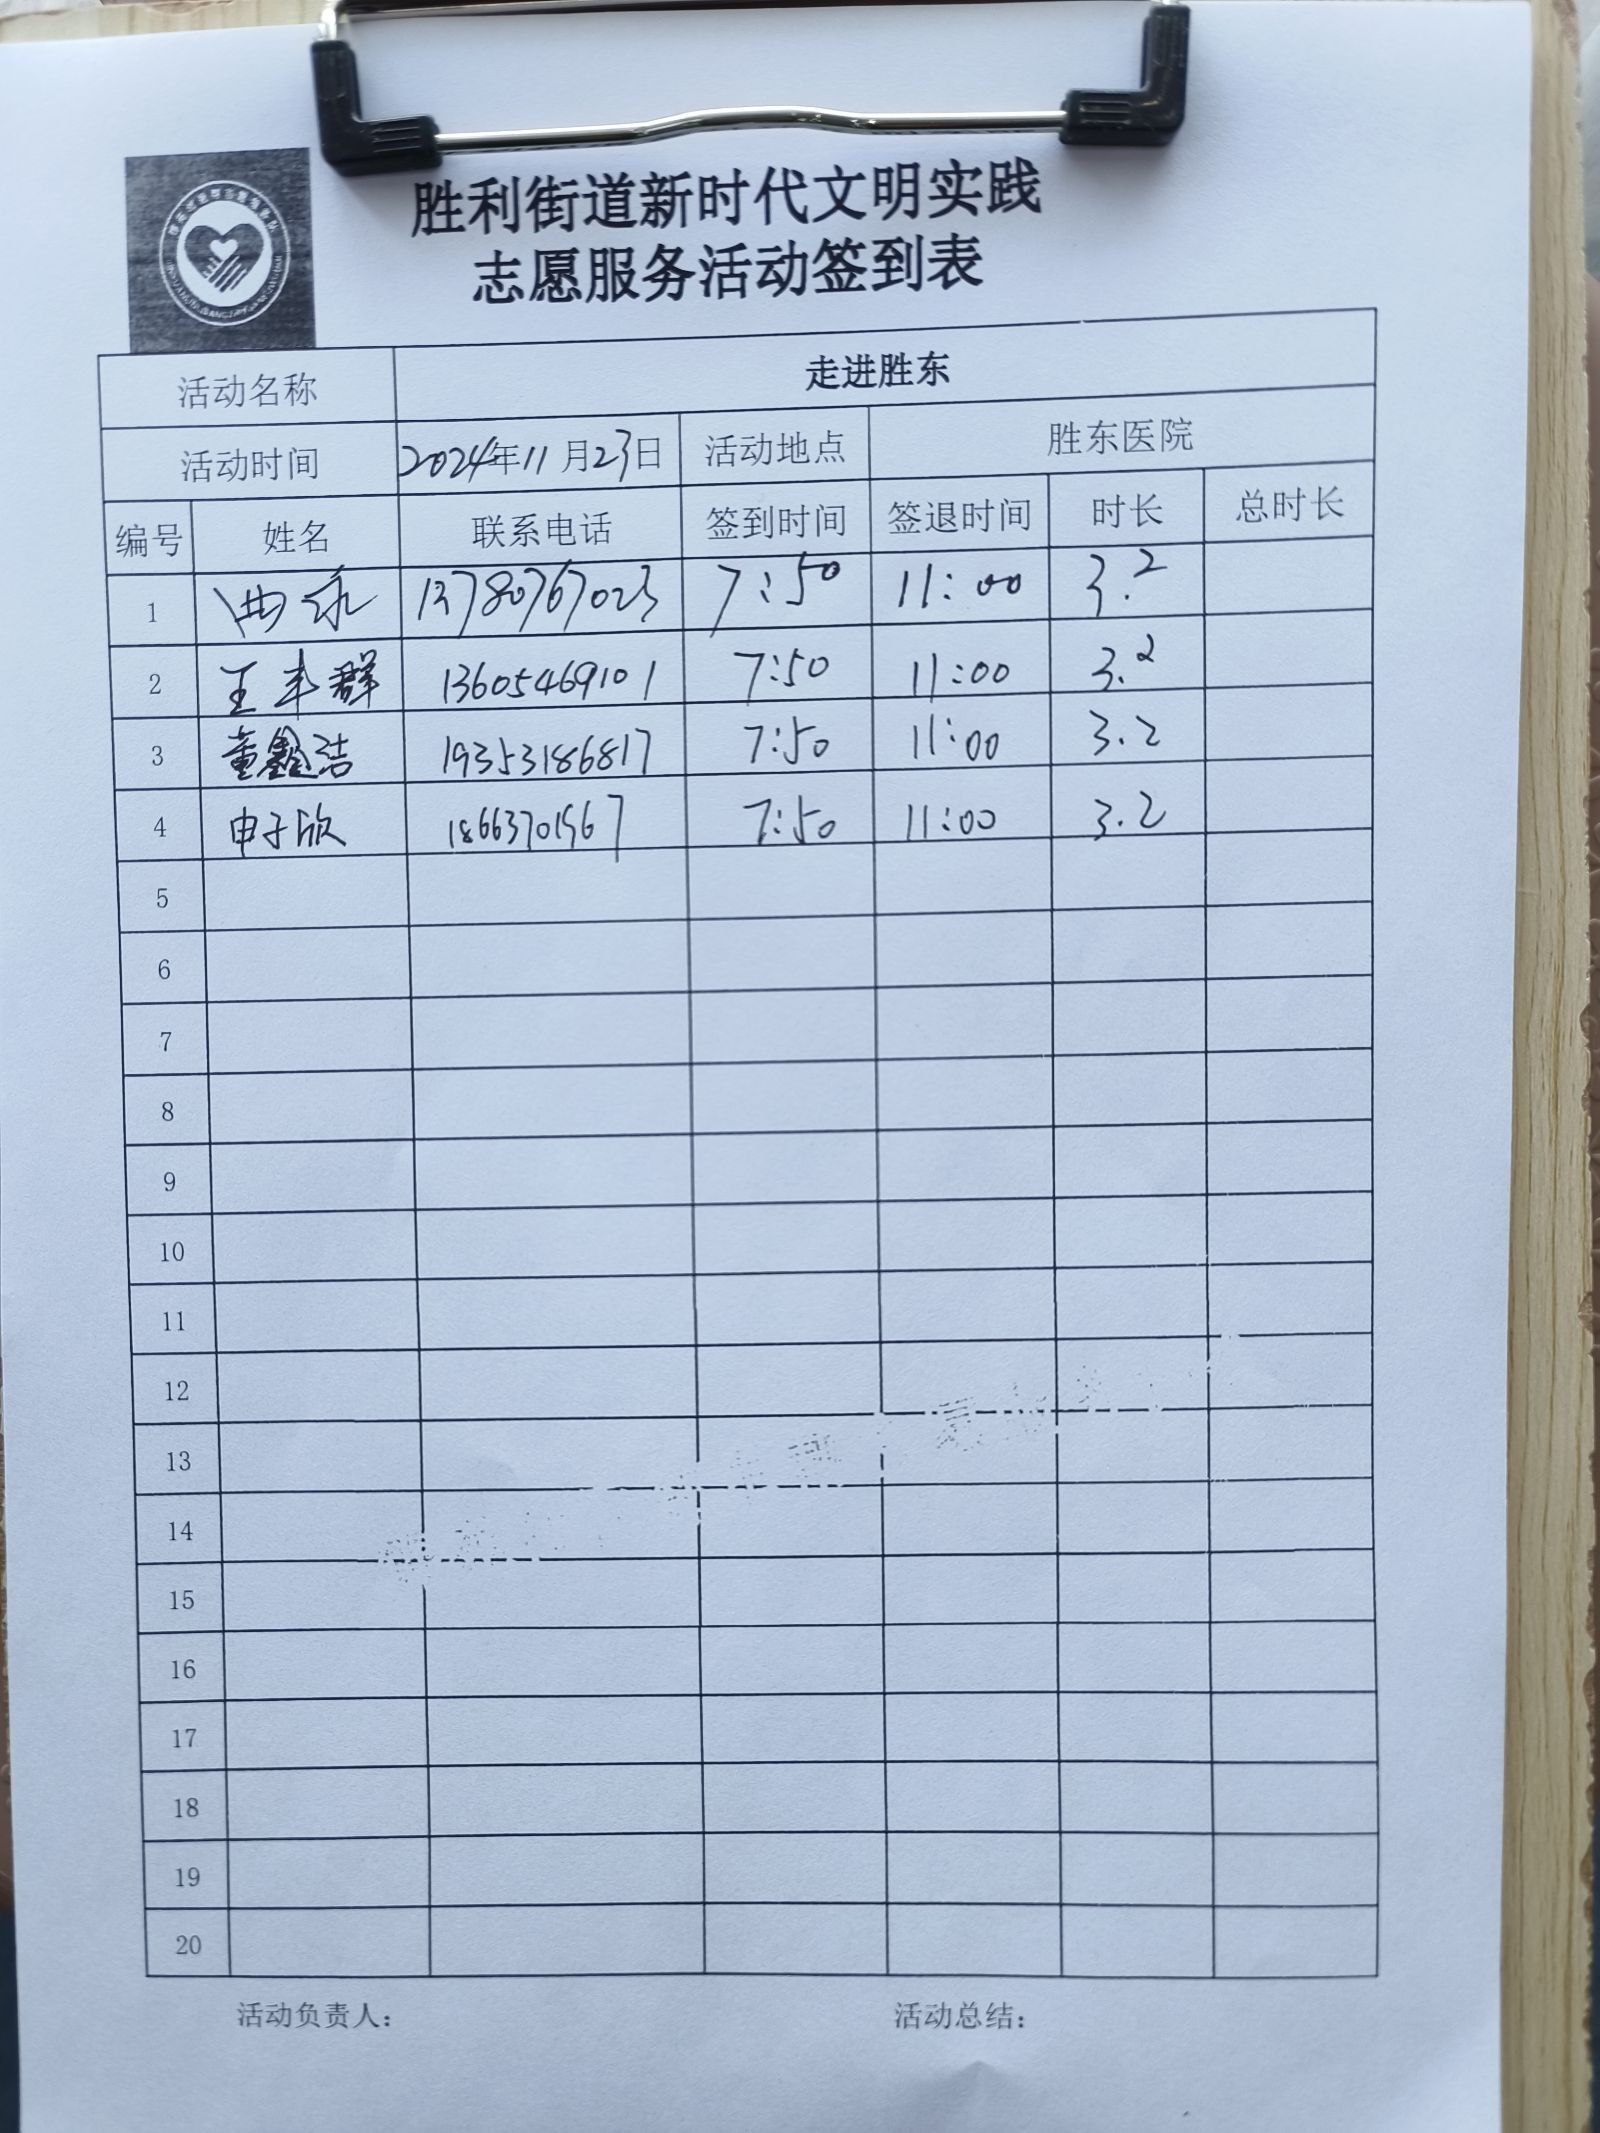 胜利街道新时代文明实践
志愿服务活动签到表
活动名称 走进胜东
活动时间 2024年11月23日 活动地点 胜东医院
编号 姓名 联系电话 签到时间 签退时间 时长 总时长
1 13780767023 7:50 11:00 3.2
2 王丰群 13605469101 7:50 11:00 3.2
3 董鑫洁 19353186817 7:50 11:00 3.2
4 申子欣 18663701567 7:50 11:00 3.2
5
6
7
8
9
10
11
12
13
14
15
16
17
18
19
20
活动负责人： 活动总结：